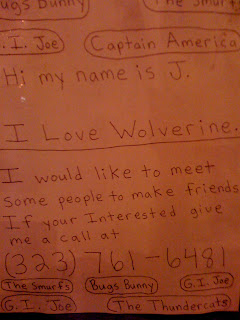 Bugs Bunny The Smurfs
G. I. Joe Captain America
Hi my name is J.
I Love Wolverine.
I would like to meet
Some people to make friends
If your Interested give
me a call at
(323) 761-6481
The Smurfs Bugs Bunny G.I. Joe
G.I. Joe The Thundercats